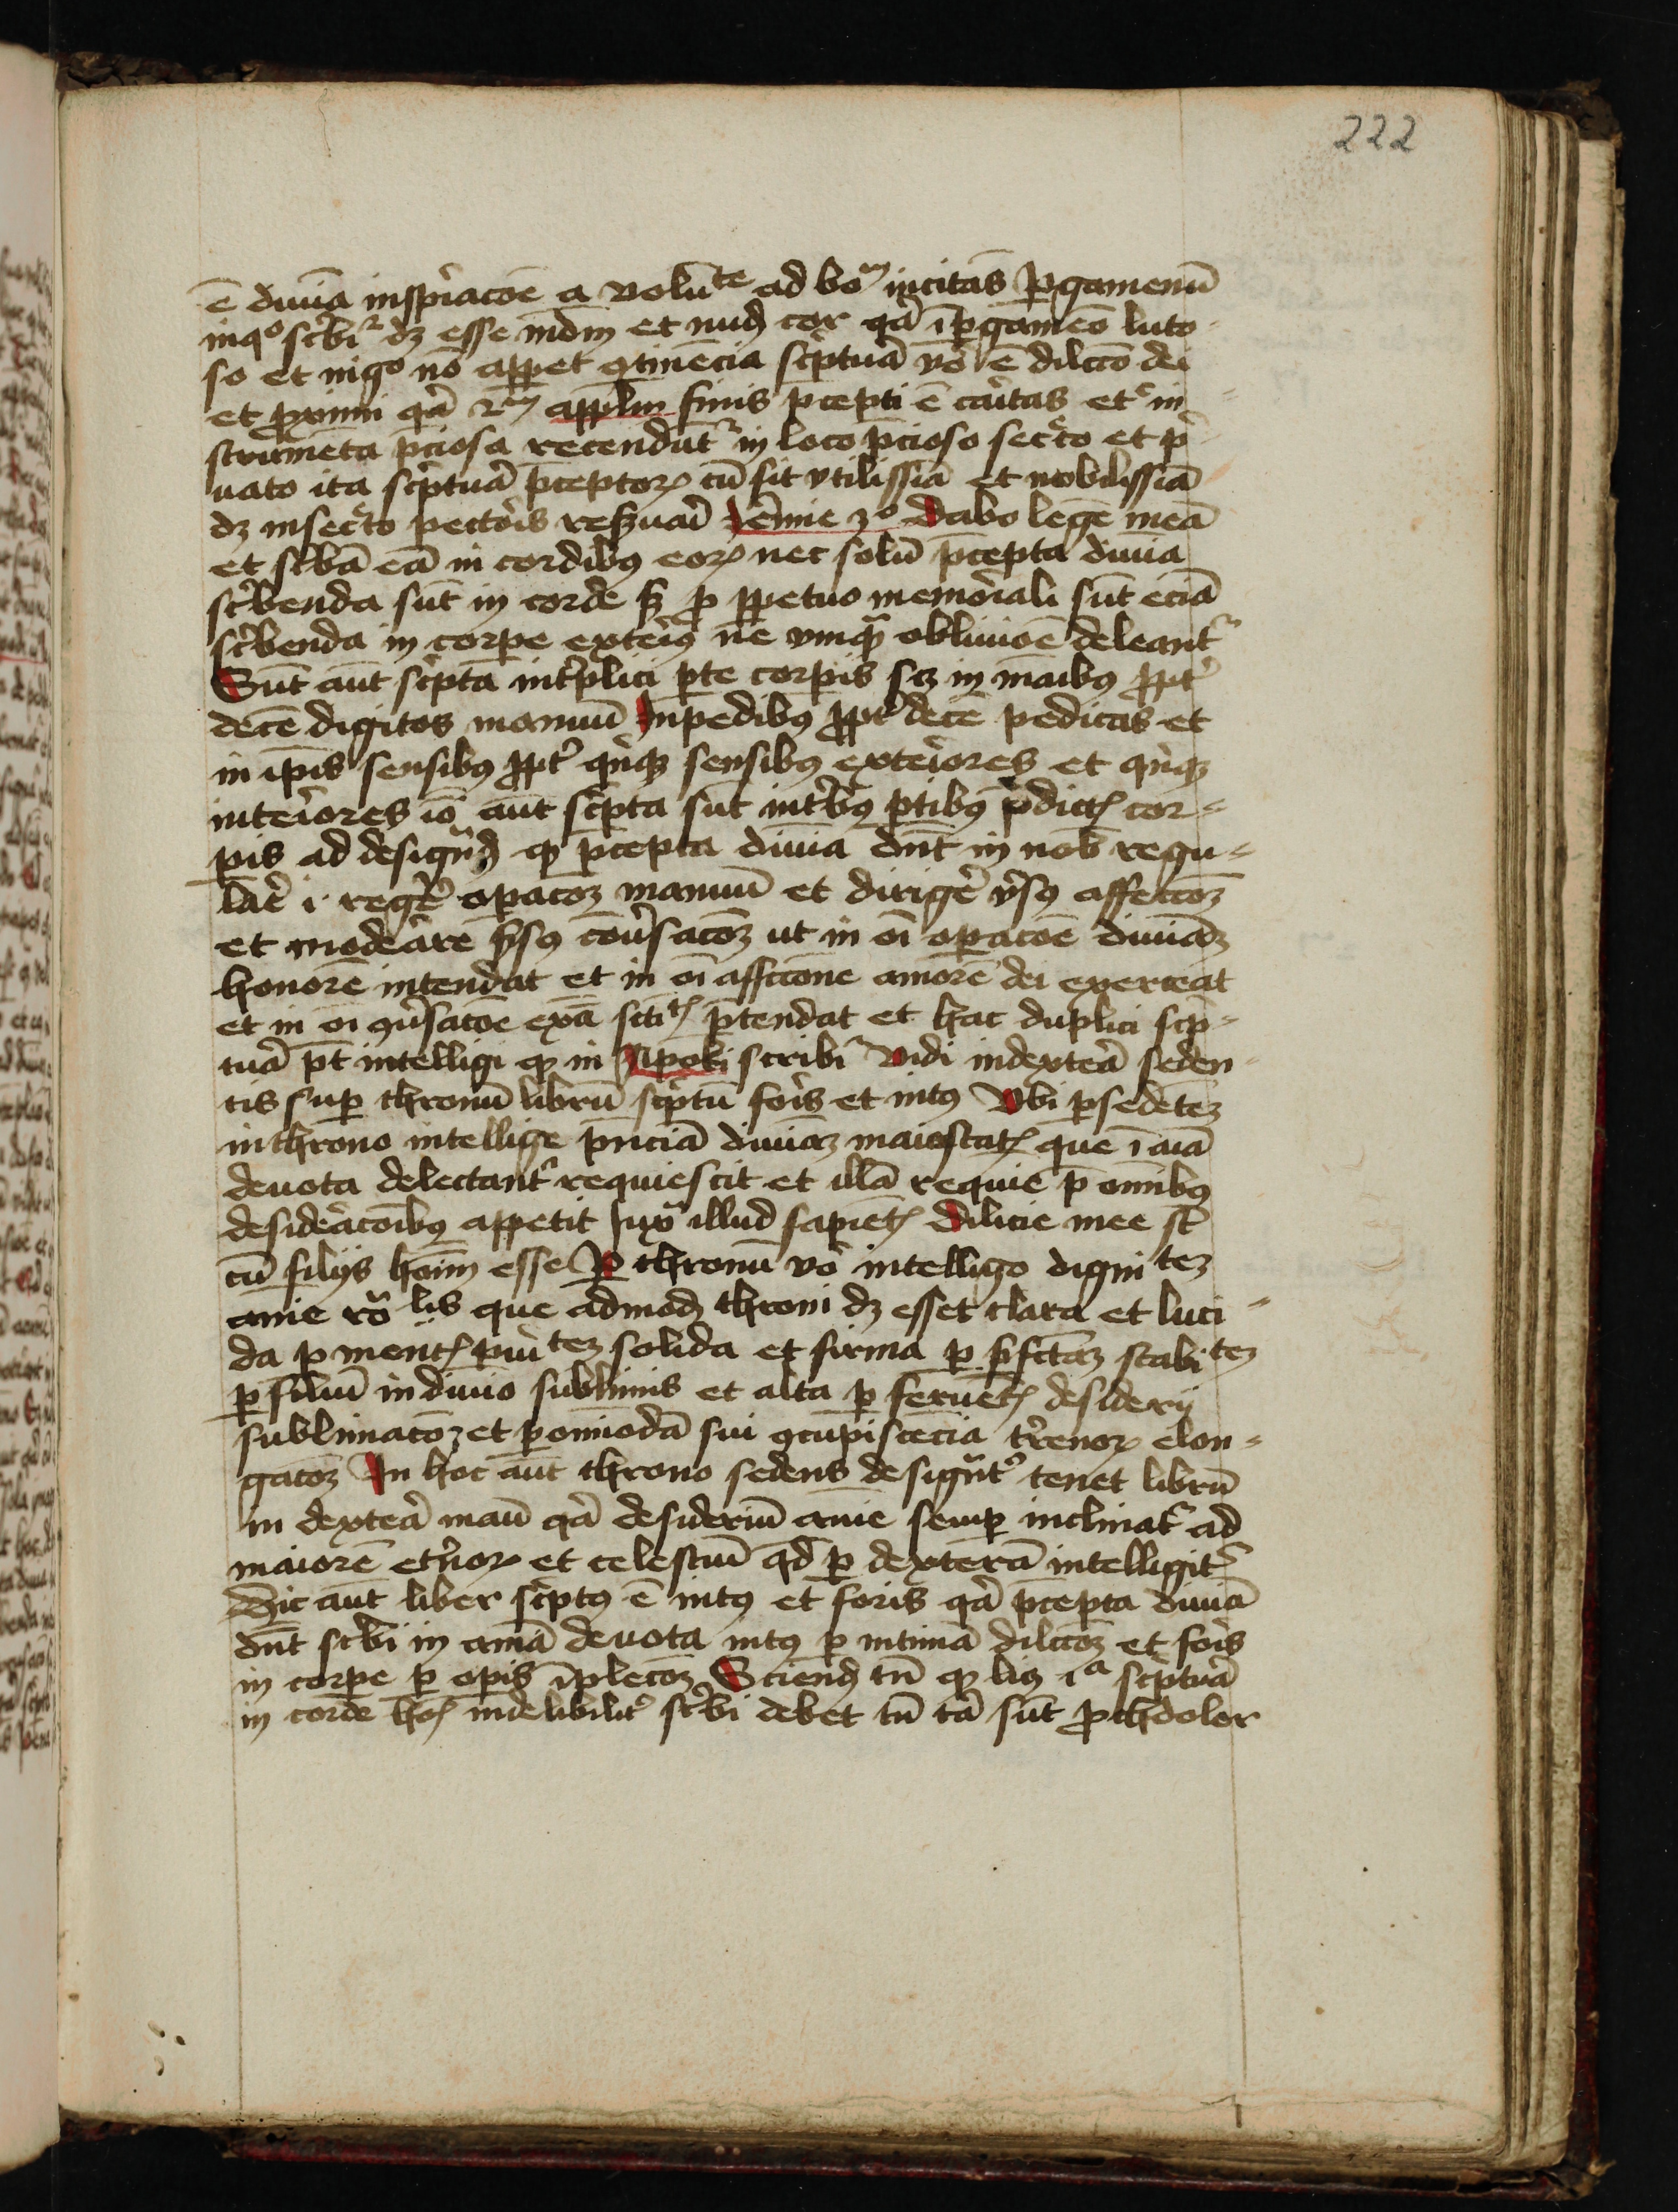 222
ē diuīa inspiracōe a volūte ad boᵐ incitās pergamenū
inqo scbir dʒ esse mdm et nudʒ cor qꝛ ī pergameō luto
so et nigo nō apparet ꝯtinēcia scptura vo ē dilcō dei
et proximi qꝛ 2m applm finis pcepti ē caritas etc in
strumēta pciosa recendūtr in loco pcioso secrto et pri
uato ita scptura pceptorꝝ cū sit vtilissīa et nobilissīa
dʒ insecrto pectoris reseruari Jerimie 30 Dabo legē meā
et scbā eā in cordibꝰ eorꝝ nec solū pcepta diuīa
scbenda sūt in corde sʒ ꝓ ꝑpetuo memoriali sūt eciā
scbenda in corpe exteriꝰ ne vmqꝫ obliuioē deleantr
Sūt aūt scpta int̄plici ꝑte corpis scʒ in maībꝰ ꝓpt
decē digitos manuū Inpedibꝰ ꝓpt decē pedicas et
in ipīs sensibꝰ ꝓpt qnqꝫ sensibꝰ exteriores et qnqꝫ
interiores iō aūt scpta sūt intbꝰ ꝑtibꝰ pdictꝭ cor-
pis ad designdʒ qꝫ pcepta diuīa dn̄t in nob regu-
lare i regere opacoʒ manuū et dirigere vsꝰ affectoʒ
et moderare ꝑsꝰ cōusacoʒ ut in oī opacoē diuināʒ
honorē intendat et in oī affcione amorē dei exerceat
et in oī ꝯusatoē exā sctitꝭ ptendat et hac duplici scp-
tura pt intelligi qꝫ in Apoki scribir Vidi indextera seden-
tis super thronū librū scptū foris et intꝰ Vbi ꝑsedētēʒ
inthrono intellige pnciā diuināʒ maiestatꝭ que ī aīā
deuota delectantr requiescit et illā requiē p omībꝰ
desideracoībꝰ appetit Jux illud sapiētꝭ dilicie mee st
cū filijs hoīm esse Per thronū vo intelligo digni teʒ
anīe rō lis que admodʒ throni dʒ esset clara et luci-
da ꝑ mentꝭ puri teʒ solida et firma ꝑ pfctaʒ stabi teʒ
ꝑ filiū in diuio sublimis et alta ꝑ feruētꝭ desiderij
sublimacoʒ et ꝑomīodā sui ꝯcupiscēcia trenorꝝ elon-
gacoʒ In hoc aūt throno sedens designtr tenet librū
in dextera manū qꝛ desideriū anīe semper inclinatr ad
maiorē etnorꝝ et celestiū qd ꝑ dexterā intelligitr
Hic aūt liber scptꝰ ē intꝰ et foris qꝛ pcepta diuīa
dn̄t scbi in anīa deuota intꝰ ꝑ intimā dilcoʒ et foris
in corpe ꝑ opis īplecoʒ Sciendʒ tn̄ qꝫ liꝫ ia scptura
in corde hoꝭ indelibilitr scbi debet tn̄ tā sūt prothdolor